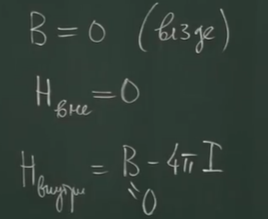 B = 0 (везде)
H вне = 0
H внутри = B - 4π I
"0